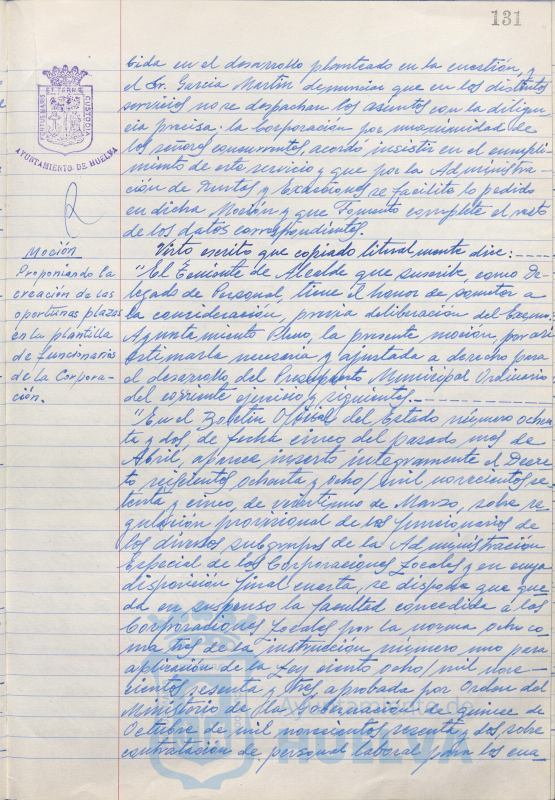 131
bida en el desarrollo planteado en la cuestión, y
el Sr. García Martín denunciar que en los distintos
servicios no se despachan los asuntos con la diligen
cia precisa: la Corporación por unanimidad de
los señores concurrentes, acordó insistir en el cumpli
miento de este servicio y que por la Administra-
ción de Rentas y Exacciones se facilite lo pedido
en dicha Moción y que Fomento complete el resto
de los datos correspondientes.
AYUNTAMIENTO DE HUELVA
Moción
Proponiendo la
creación de las
oportunas plazas
en la plantilla
de funcionarios
de la Corpora-
ción.
Visto escrito que copiado literalmente dice:
"El Teniente de Alcalde que suscribe, como De
legado de Personal, tiene el honor de someter a
la consideración, previa deliberación del Excmo.
Ayuntamiento Pleno, la presente moción, por así
estimarla necesaria y ajustada a derecho para
el desarrollo del Presupuesto Municipal Ordinario
del corriente ejercicio y siguientes.
"En el Boletín Oficial del Estado número ochen
ta y dos de fecha cinco del pasado mes de
Abril, aparece inserto íntegramente el Decre
to seiscientos ochenta y ocho/mil novecientos se-
tenta y cinco, de veintiuno de Marzo, sobre re-
gulación provisional de los funcionarios de
los diversos subgrupos de la Administración
Especial de las Corporaciones Locales y en cuya
disposición final cuarta, se dispone que que-
da en suspenso la facultad concedida a las
Corporaciones Locales por la norma ocho co
ma tres de la instrucción número uno para
aplicación de la Ley ciento ocho/mil nove-
cientos sesenta y tres aprobada por Orden del
Ministerio de la Gobernación de quince de
Octubre de mil novecientos sesenta y dos, sobre
contratación de personal laboral para los cua
Ayuntamiento de
HUELVA